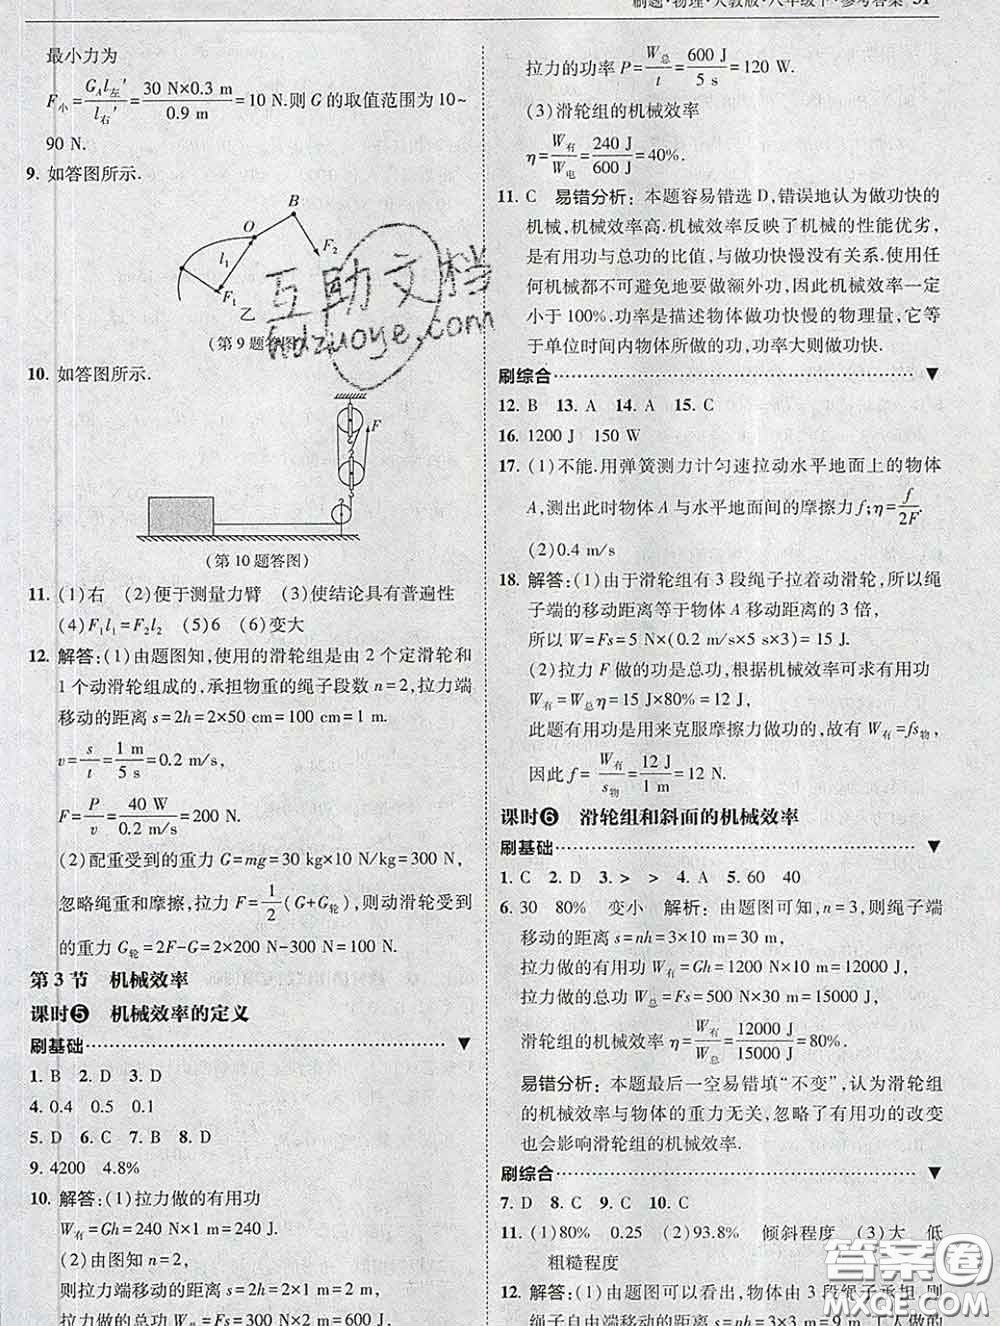 刷题·物理·人教版·八年级下·参考答案 51
最小力为
F小=G_A l左′/l右′=30 N×0.3 m/0.9 m=10 N.则 G 的取值范围为 10~
90 N.
9. 如答图所示.
B
O
l₁
F₂
F₁
乙
(第 9 题答图)
10. 如答图所示.
F
(第 10 题答图)
11. (1)右 (2)便于测量力臂 (3)使结论具有普遍性
(4)F₁l₁=F₂l₂ (5)6 (6)变大
12. 解答:(1)由题图知,使用的滑轮组是由 2 个定滑轮和
1 个动滑轮组成的,承担物重的绳子段数 n=2,拉力端
移动的距离 s=2h=2×50 cm=100 cm=1 m.
v=s/t=1 m/5 s=0.2 m/s,
F=P/v=40 W/0.2 m/s=200 N.
(2)配重受到的重力 G=mg=30 kg×10 N/kg=300 N,
忽略绳重和摩擦,拉力 F=1/2(G+G轮),则动滑轮受到
的重力 G轮=2F-G=2×200 N-300 N=100 N.
第 3 节 机械效率
课时❺ 机械效率的定义
刷基础
1. B 2. D 3. D
4. 0.4 0.5 0.1
5. D 6. C 7. B 8. D
9. 4200 4.8%
10. 解答:(1)拉力做的有用功
W有=Gh=240 N×1 m=240 J.
(2)由图知 n=2,
则拉力端移动的距离 s=2h=2×1 m=2 m,
拉力的功率 P=W总/t=600 J/5 s=120 W.
(3)滑轮组的机械效率
η=W有/W电=240 J/600 J=40%.
11. C 易错分析:本题容易错选 D,错误地认为做功快的
机械,机械效率高.机械效率反映了机械的性能优劣,
是有用功与总功的比值,与做功快慢没有关系.使用任
何机械都不可避免地要做额外功,因此机械效率一定
小于 100%.功率是描述物体做功快慢的物理量,它等
于单位时间内物体所做的功,功率大则做功快.
刷综合
12. B 13. A 14. A 15. C
16. 1200 J 150 W
17. (1)不能.用弹簧测力计匀速拉动水平地面上的物体
A,测出此时物体 A 与水平地面间的摩擦力 f;η=f/2F.
(2)0.4 m/s
18. 解答:(1)由于滑轮组有 3 段绳子拉着动滑轮,所以绳
子端的移动距离等于物体 A 移动距离的 3 倍,
所以 W=Fs=5 N×(0.2 m/s×5 s×3)=15 J.
(2)拉力 F 做的功是总功,根据机械效率可求有用功
W有=W总η=15 J×80%=12 J,
此题有用功是用来克服摩擦力做功的,故有 W有=fs物,
因此 f=W有/s物=12 J/1 m=12 N.
课时❻ 滑轮组和斜面的机械效率
刷基础
1. C 2. D 3. > > 4. A 5. 60 40
6. 30 80% 变小 解析:由题图可知,n=3,则绳子端
移动的距离 s=nh=3×10 m=30 m,
拉力做的有用功 W有=Gh=1200 N×10 m=12000 J,
拉力做的总功 W总=Fs=500 N×30 m=15000 J,
滑轮组的机械效率 η=W有/W总=12000 J/15000 J=80%.
易错分析:本题最后一空易错填“不变”,认为滑轮组
的机械效率与物体的重力无关,忽略了有用功的改变
也会影响滑轮组的机械效率.
刷综合
7. D 8. C 9. C 10. C
11. (1)80% 0.25 (2)93.8% 倾斜程度 (3)大 低
粗糙程度
12. 解答:(1)由题图可以看出,物体由 3 段绳子承担,则
互助文档
hdzuoye.com
答案圈
MXQE.COM